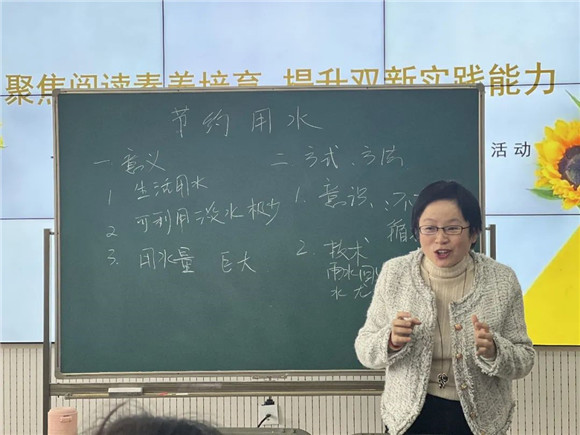 聚焦阅读素养培育 提升双新实践能力
活动
节约用水
一 意义
1 生活用水
2 可利用淡水极少
3. 用水量 巨大
二 方式、方法
1. 意识:不
循
2. 技术
雨水回
水